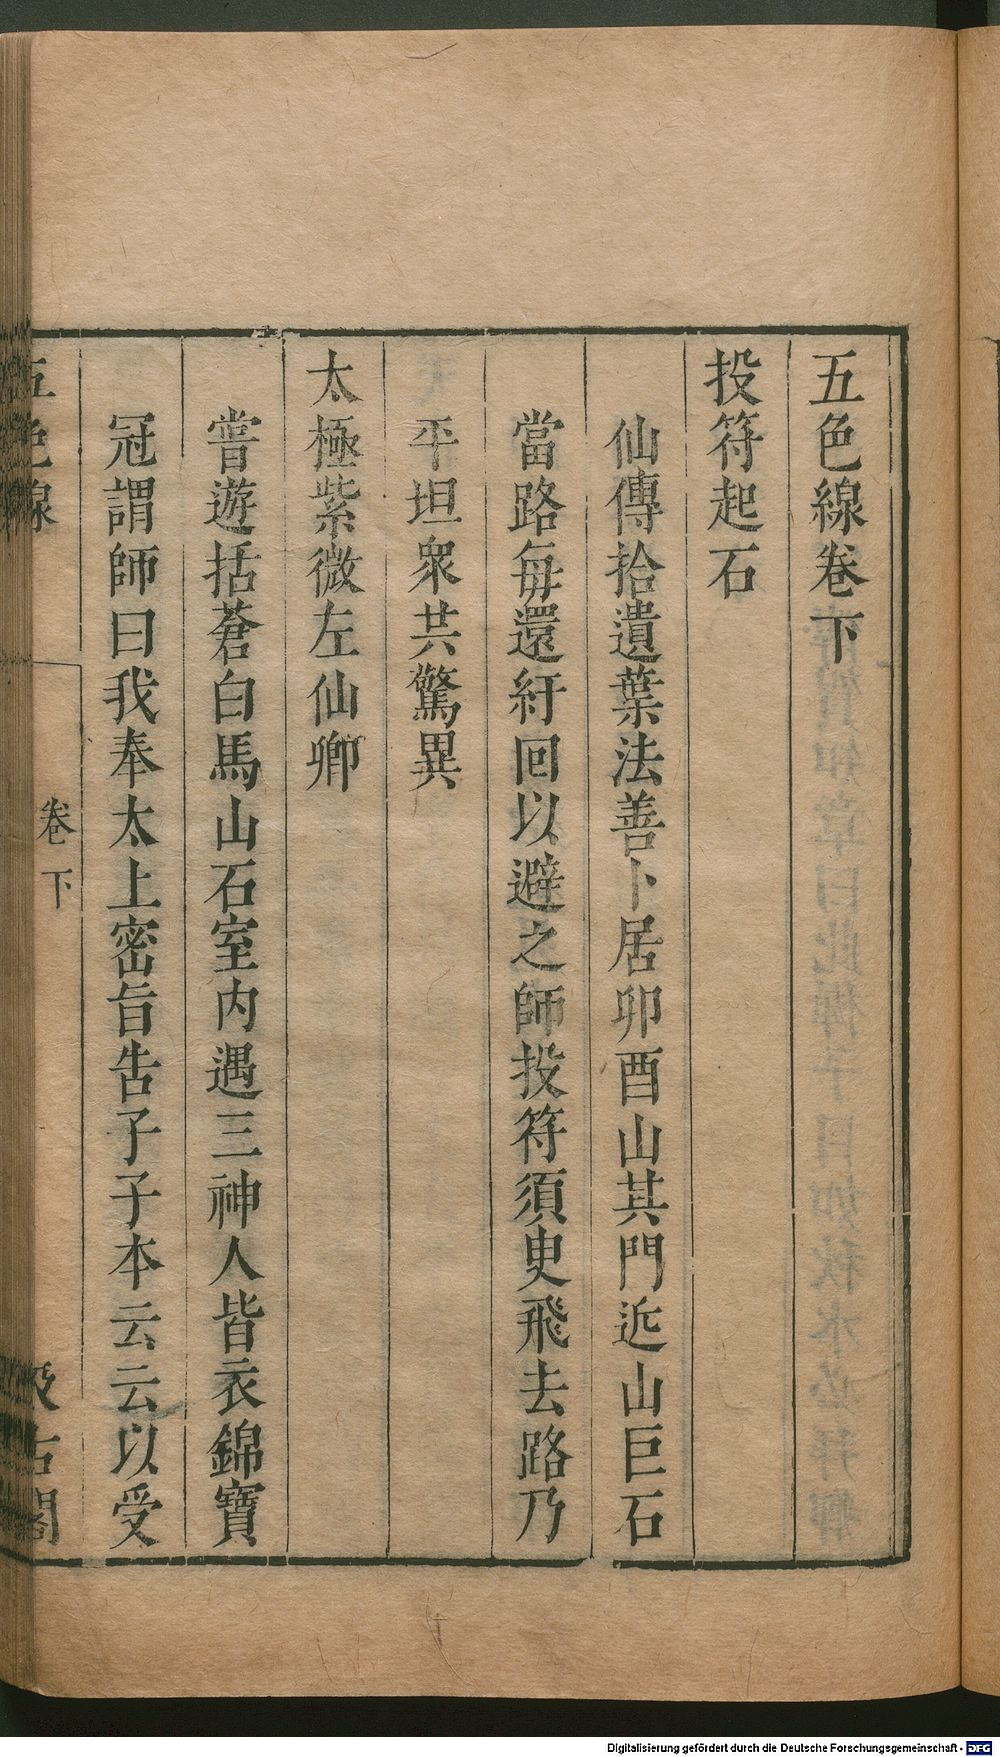 五色線卷下
投符起石
仙傳拾遺葉法善卜居卯酉山其門近山巨石
當路每還紆回以避之師投符須臾飛去路乃
平坦衆共驚異
太極紫微左仙卿
嘗遊括蒼白馬山石室內遇三神人皆衣錦寶
冠謂師曰我奉太上密旨告子子本云云以受
五色線
卷下
汲古閣
Digitalisierung gefördert durch die Deutsche Forschungsgemeinschaft - DFG